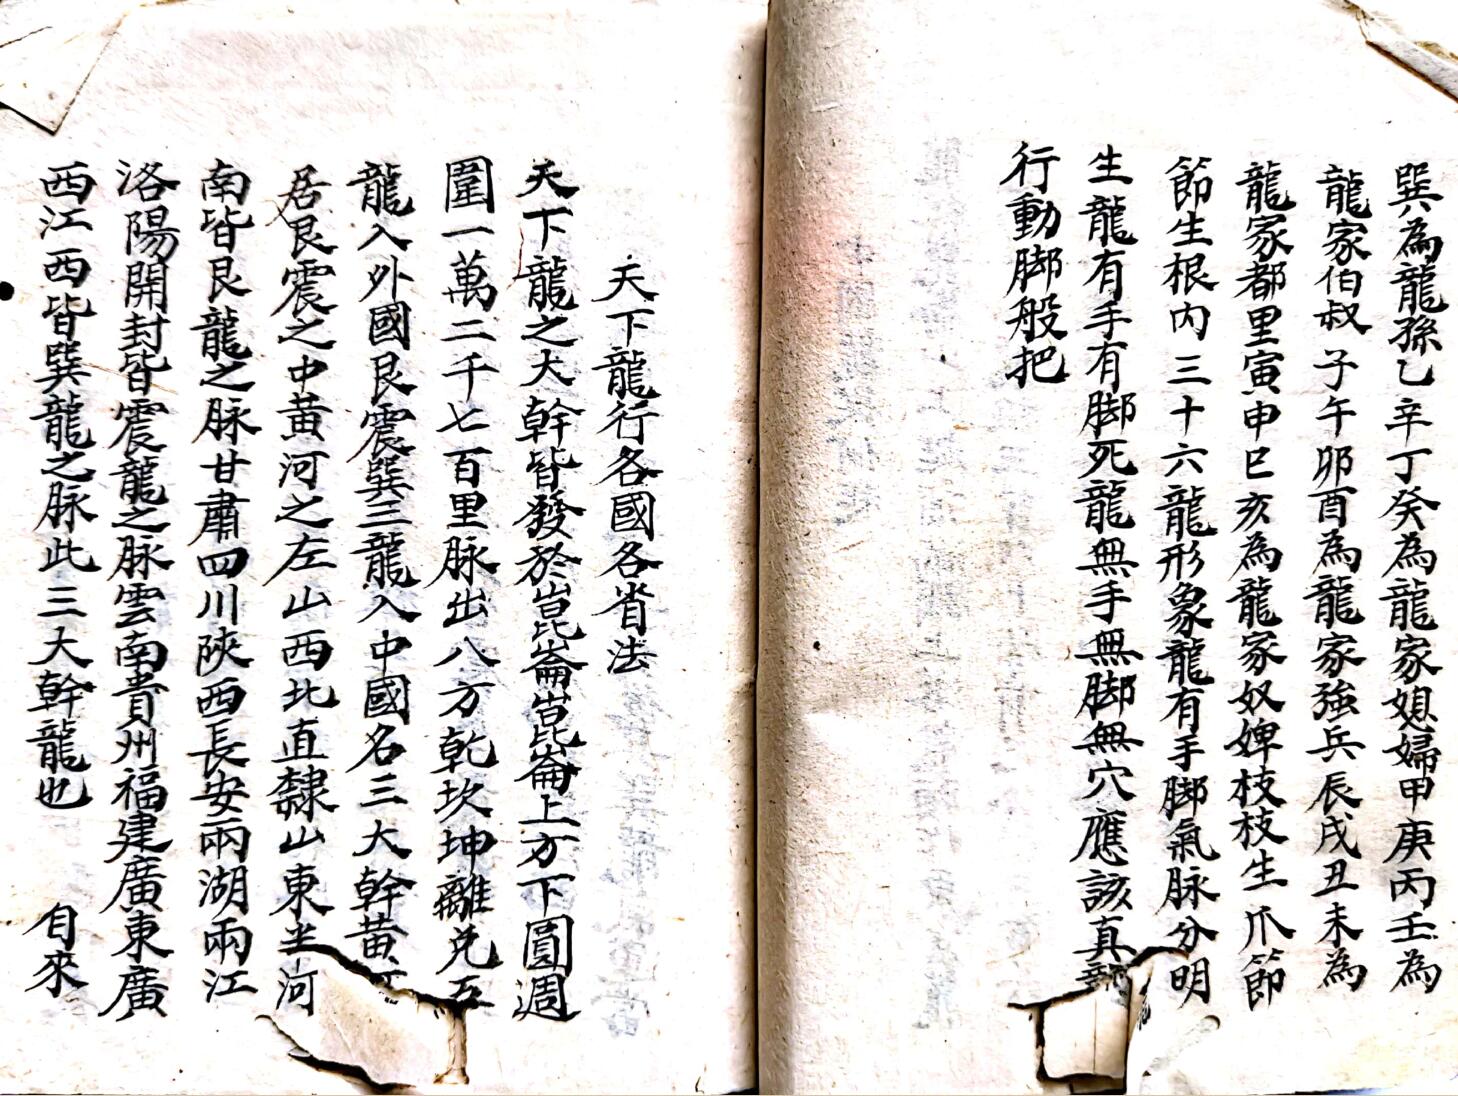 巽為龍孫乙辛丁癸為龍家媳婦甲庚丙壬為
龍家伯叔子午卯酉為龍家強兵辰戌丑未為
龍家都里寅申巳亥為龍家奴婢枝枝生爪節
節生根內三十六龍形象龍有手脚氣脉分明
生龍有手有脚死龍無手無脚無穴應該真龍
行動脚般把
天下龍行各國各省法
天下龍之大幹皆發於崑崙崑崙上方下圓週
圍一萬二千七百里脉出八方乾坎坤離兌五
龍入外國艮震巽三龍入中國名三大幹黄
居艮震之中黄河之左山西北直隸山東半河
南皆艮龍之脉甘肅四川陝西長安兩湖兩江
洛陽開封皆震龍之脉雲南貴州福建廣東廣
西江西皆巽龍之脉此三大幹龍也 自來